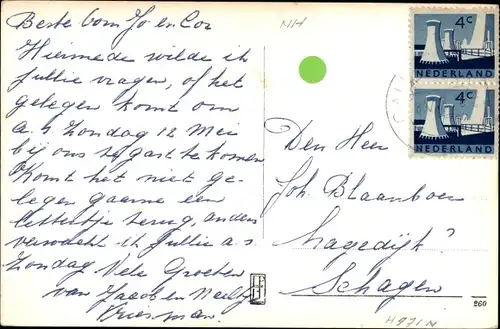 Beste Oom Jo en Cor
Hiermede wilde ik
jullie vragen, of het
gelegen komt om
a.s. Zondag 12 Mei
bij ons te gast te komen
Komt het niet ge-
legen gaarne een
lettertje terug, anders
verwacht ik jullie a.s.
Zondag Vele Groeten
van Jacob en Nelly
Kriesman.
NH
4c
NEDERLAND
4c
NEDERLAND
Den Heer
Joh. Blaauboer
Lagedijk?
Schagen
260